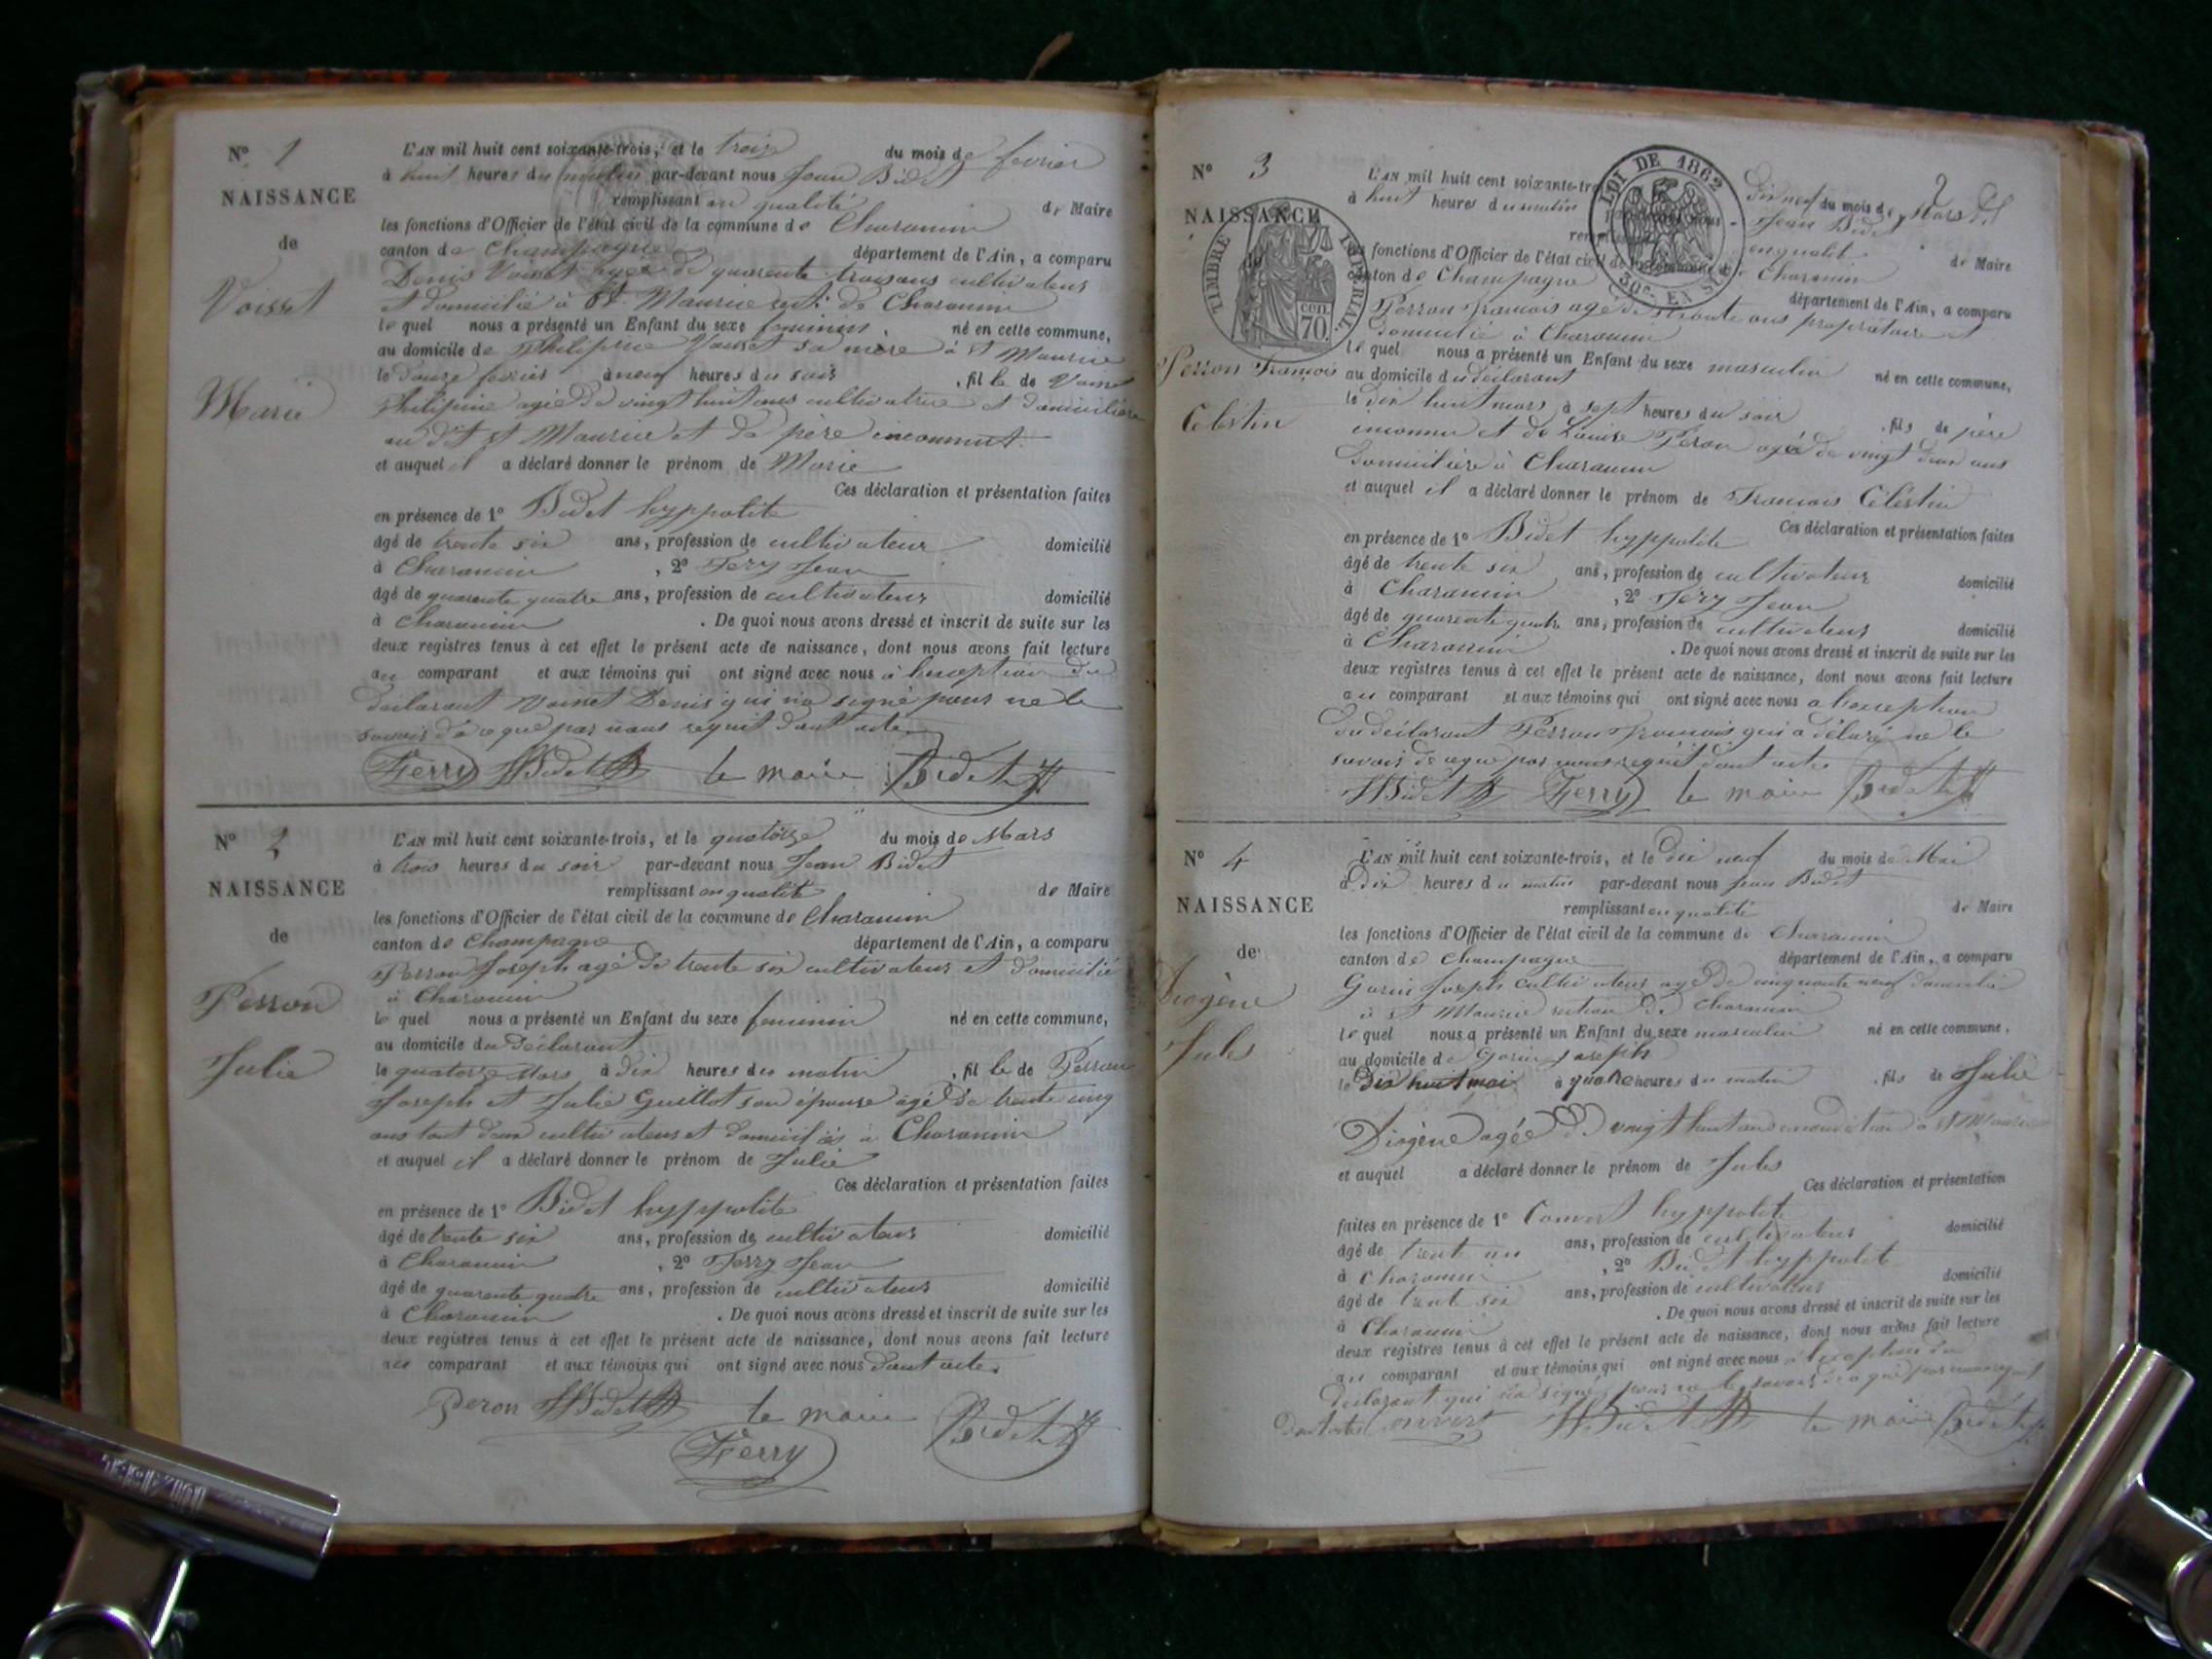 N° 1
NAISSANCE
de
Voisset
Marie
L'AN mil huit cent soixante-trois, et le treize du mois de fevrier
à huit heures du matin par-devant nous Jean Bidet
remplissant en qualité de Maire
les fonctions d'Officier de l'état civil de la commune de Charancin
canton de Champagne département de l'Ain, a comparu
Denis Voisset agée de quarente trois ans cultivateur
et domicilié à St Maurice de Charancin
le quel nous a présenté un Enfant du sexe feminin, né en cette commune,
au domicile de Philipine Voisset sa mère à St Maurice
le douze fevrier à neuf heures du soir , fille de Voisset
Philipine agée de vingt huit ans cultivatrice et domiciliée
au dit St Maurice et de père inconnut
et auquel il a déclaré donner le prénom de Marie
Ces déclaration et présentation faites
en présence de 1° Bidet hyppolite
âgé de trente six ans, profession de cultivateur domicilié
à Charancin , 2° Ferry Jean
âgé de quarente quatre ans, profession de cultivateur domicilié
à Charancin . De quoi nous avons dressé et inscrit de suite sur les
deux registres tenus à cet effet le présent acte de naissance, dont nous avons fait lecture
au comparant et aux témoins qui ont signé avec nous à l'exception du
déclarant Voisset Denis qui n'a signé pour ne le
savoir de ce que par nous requit dont acte
Ferry HBidet le maire Bidet
N° 2
NAISSANCE
de
Perron
Julie
L'AN mil huit cent soixante-trois, et le quatorze du mois de Mars
à trois heures du soir par-devant nous Jean Bidet
remplissant en qualité de Maire
les fonctions d'Officier de l'état civil de la commune de Charancin
canton de Champagne département de l'Ain, a comparu
Perron Joseph agé de trente six cultivateur et domicilié
à Charancin
le quel nous a présenté un Enfant du sexe feminin né en cette commune,
au domicile du déclarant
le quatorze Mars à dix heures du matin , fille de Perron
Joseph et Julie Guillot son épouse agée de trente cinq
ans tout deux cultivateurs et domiciliés à Charancin
et auquel il a déclaré donner le prénom de Julie
Ces déclaration et présentation faites
en présence de 1° Bidet hyppolite
âgé de trente six ans, profession de cultivateur domicilié
à Charancin , 2° Ferry Jean
âgé de quarente quatre ans, profession de cultivateur domicilié
à Charancin . De quoi nous avons dressé et inscrit de suite sur les
deux registres tenus à cet effet le présent acte de naissance, dont nous avons fait lecture
au comparant et aux témoins qui ont signé avec nous dont acte.
Peron HBidet le maire Bidet
Ferry
N° 3
NAISSANCE
TIMBRE IMPERIAL.
CEN. 70.
LOI DE 1862
30c. EN SUS
Perron François
Célestin
L'AN mil huit cent soixante-trois dix neuf du mois de Mars
à huit heures du matin Jean Bidet
en qualité de Maire
les fonctions d'Officier de l'état civil de la commune de Charancin
canton de Champagne département de l'Ain, a comparu
Perron François agé de ans propriétaire et
domicilié à Charancin
le quel nous a présenté un Enfant du sexe masculin né en cette commune,
au domicile du déclarant
le dix huit mars à sept heures du soir , fils de père
inconnu et de Louise Peron agée de vingt deux ans
domiciliée à Charancin
et auquel il a déclaré donner le prénom de François Célestin
Ces déclaration et présentation faites
en présence de 1° Bidet hyppolite
âgé de trente six ans, profession de cultivateur domicilié
à Charancin , 2° Ferry Jean
âgé de quarente quatre ans, profession de cultivateur domicilié
à Charancin . De quoi nous avons dressé et inscrit de suite sur les
deux registres tenus à cet effet le présent acte de naissance, dont nous avons fait lecture
au comparant et aux témoins qui ont signé avec nous a l'exception
du déclarant Perron François qui a déclaré ne le
savoir de ce que par nous requit dont acte
HBidet Ferry le maire Bidet
N° 4
NAISSANCE
de
Diogène
Jules
L'AN mil huit cent soixante-trois, et le dix neuf du mois de Mai
à dix heures du matin par-devant nous Jean Bidet
remplissant en qualité de Maire
les fonctions d'Officier de l'état civil de la commune de Charancin
canton de Champagne département de l'Ain, a comparu
Gorin Joseph cultivateur agé de cinquante neuf domicilié
à St Maurice section de Charancin
le quel nous a présenté un Enfant du sexe masculin né en cette commune,
au domicile de Gorin Joseph
le dix huit mai à quatre heures du matin , fils de Julie
Diogène agée de vingt huit ans à St Maurice
et auquel a déclaré donner le prénom de Jules
Ces déclaration et présentation
faites en présence de 1° Convert hyppolite
âgé de trent un ans, profession de cultivateur domicilié
à Charancin , 2° Bidet hyppolit
âgé de trent six ans, profession de cultivateur domicilié
à Charancin . De quoi nous avons dressé et inscrit de suite sur les
deux registres tenus à cet effet le présent acte de naissance, dont nous avons fait lecture
au comparant et aux témoins qui ont signé avec nous à l'exception du
déclarant qui n'a signé pour ne le savoir de ce que par nous requit
dont acte Convert HBidet le maire Bidet